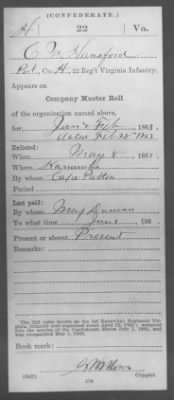 (CONFEDERATE.)
H 22 Va.
C. W. Hansford
Pvt, Co. H, 22 Reg't Virginia Infantry.
Appears on
Company Muster Roll
of the organization named above,
for Jan & Feb, 1863.
dated Feb 28 1863
Enlisted:
When May 8, 1861.
Where Kanawha
By whom Capt Patton
Period
Last paid:
By whom Maj
To what time 186
Present or absent Present
Remarks:
The 22d (also known as the 1st Kanawha) Regiment Virginia
Book mark:
(642)
Copyist.